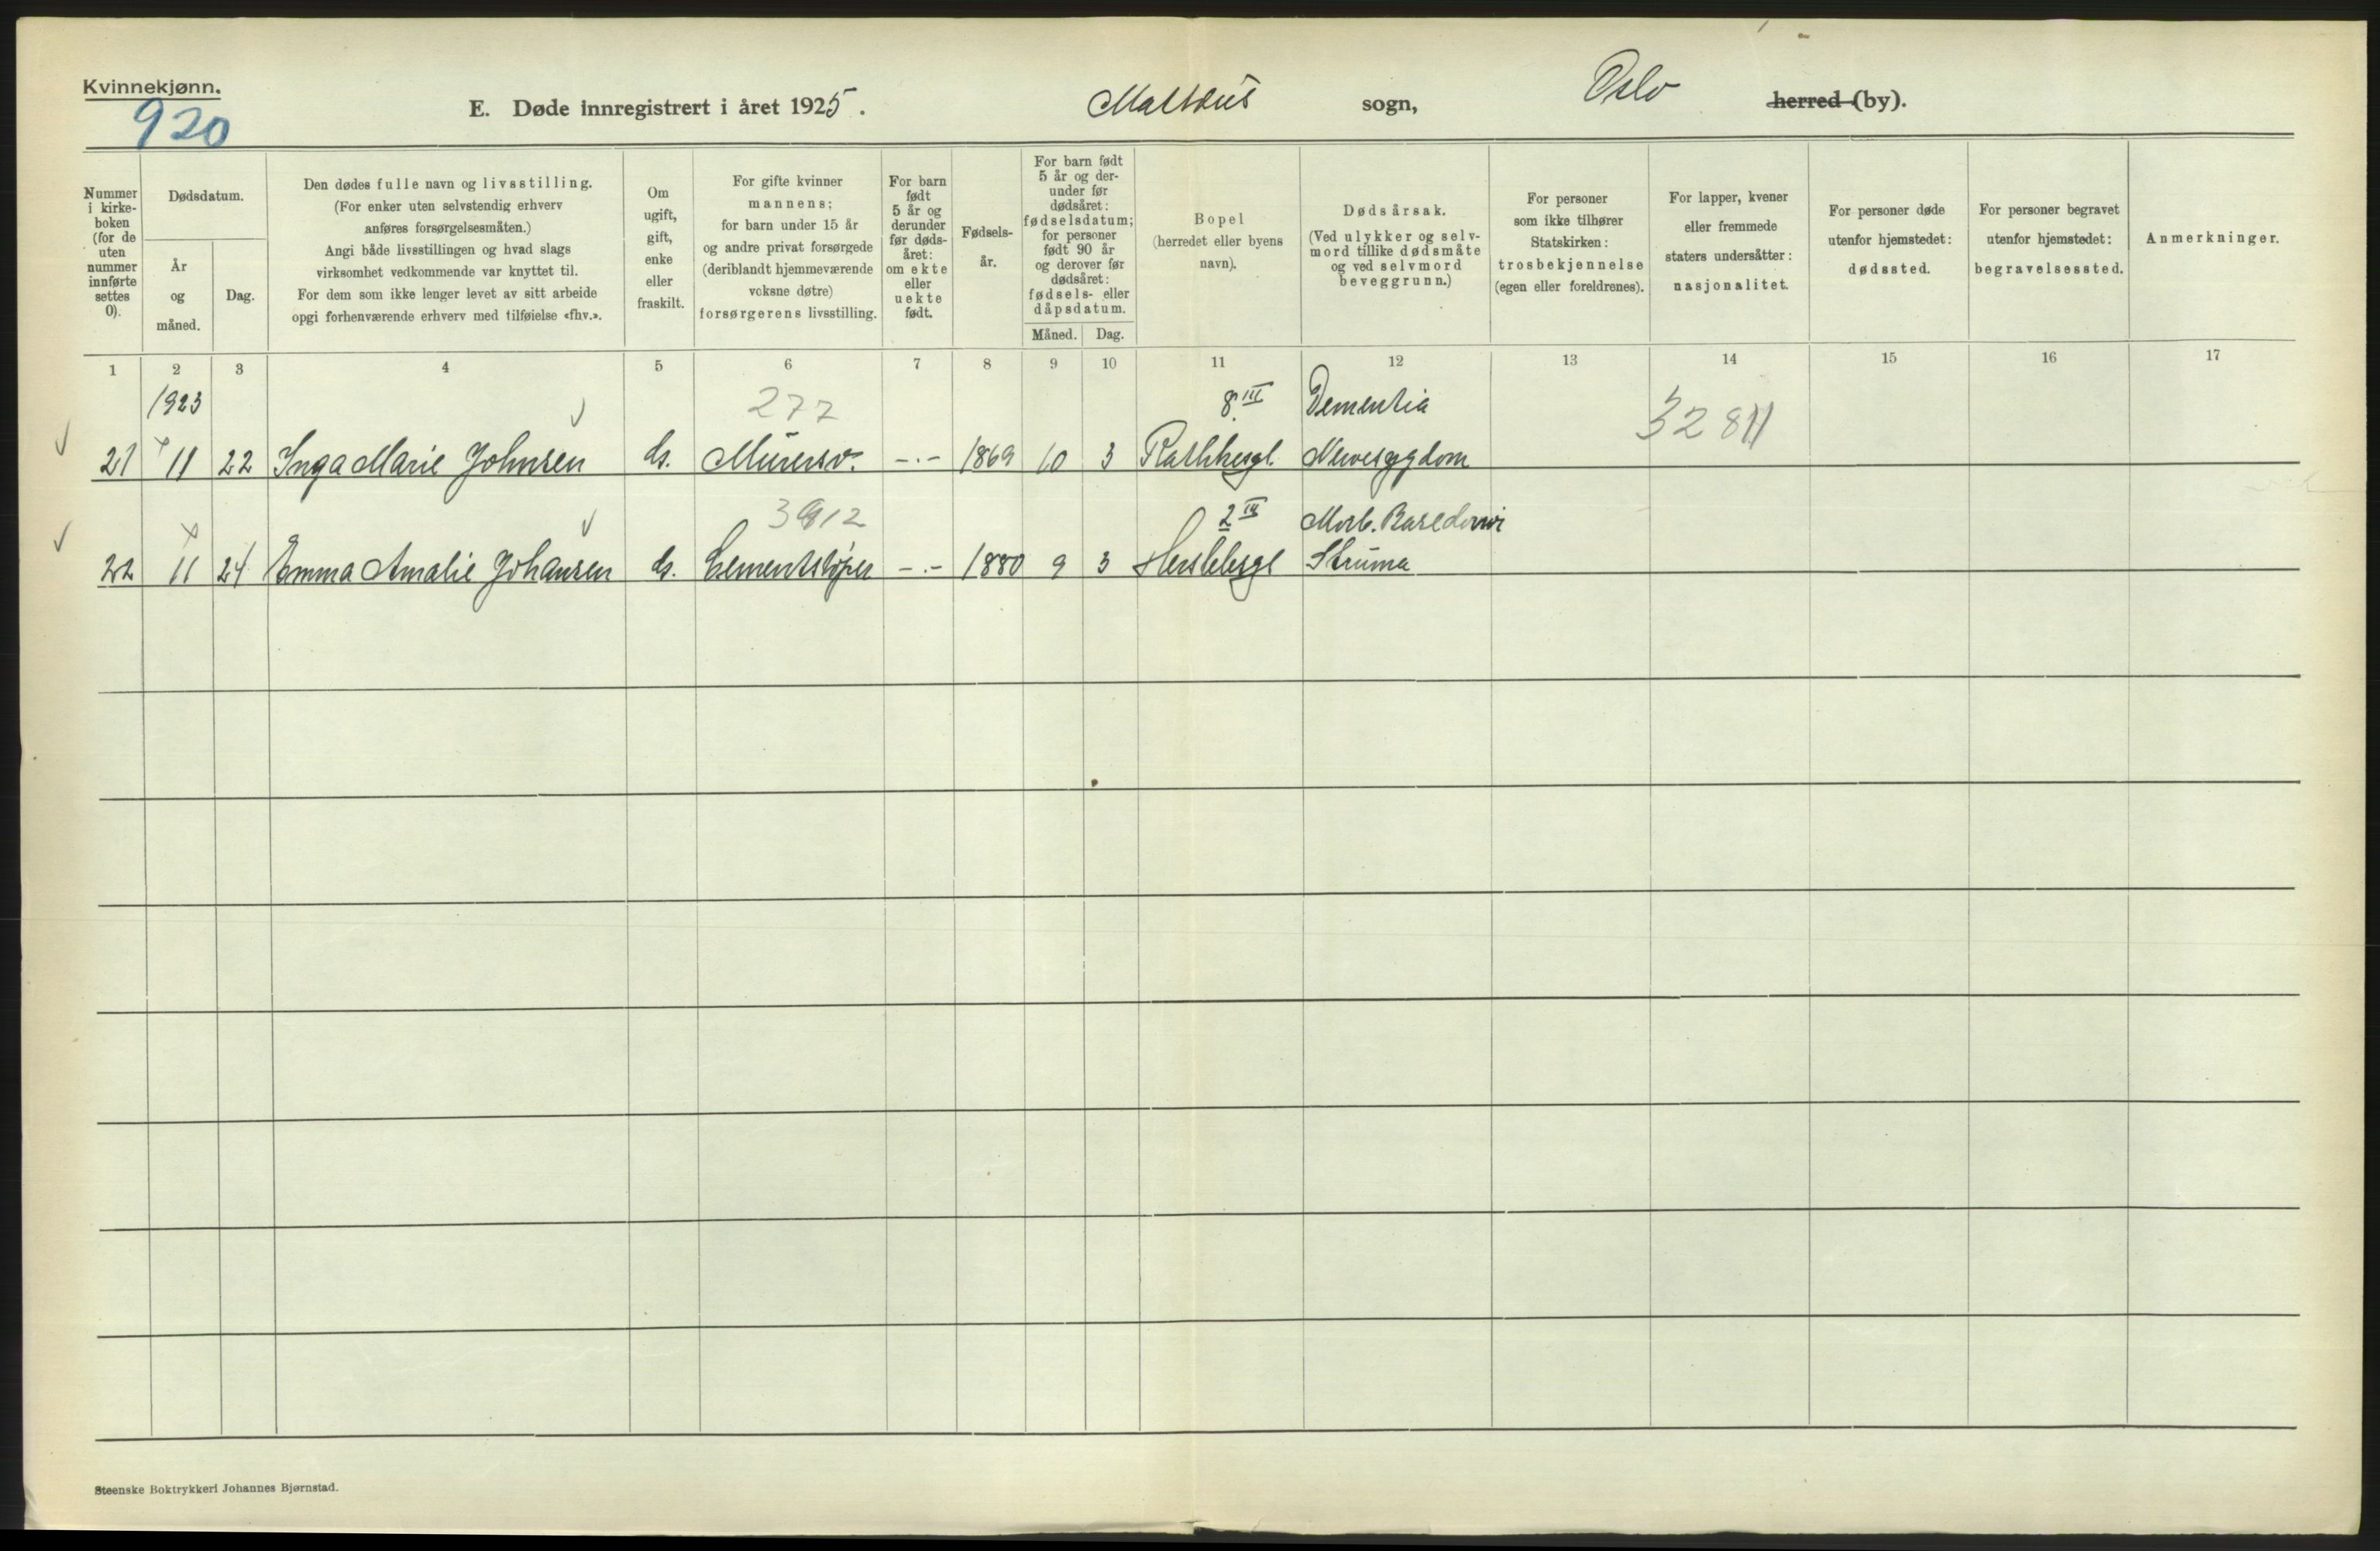 Kvinnekjønn.
920
E. Døde innregistrert i året 1925. Mattæus sogn, Oslo herred (by).
Nummer i kirke-boken (for de uten nummer innførte settes 0).
Dødsdatum.
År og måned.
Dag.
Den dødes fulle navn og livsstilling.
(For enker uten selvstendig erhverv
anføres forsørgelsesmåten.)
Angi både livsstillingen og hvad slags
virksomhet vedkommende var knyttet til.
For dem som ikke lenger levet av sitt arbeide
opgi forhenværende erhverv med tilføielse «fhv.».
Om
ugift,
gift,
enke
eller
fraskilt.
For gifte kvinner
mannens;
for barn under 15 år
og andre privat forsørgede
(deriblandt hjemmeværende
voksne døtre)
forsørgerens livsstilling.
For barn
født
5 år og
derunder
før døds-
året:
om ekte
eller
uekte
født.
Fødsels-
år.
For barn født
5 år og der-
under før
dødsåret:
fødselsdatum;
for personer
født 90 år
og derover før
dødsåret:
fødsels- eller
dåpsdatum.
Måned. Dag.
Bopel
(herredet eller byens
navn).
Dødsårsak.
(Ved ulykker og selv-
mord tillike dødsmåte
og ved selvmord
beveggrunn.)
For personer
som ikke tilhører
Statskirken:
trosbekjennelse
(egen eller foreldrenes).
For lapper, kvener
eller fremmede
staters undersåtter:
nasjonalitet.
For personer døde
utenfor hjemstedet:
dødssted.
For personer begravet
utenfor hjemstedet:
begravelsessted.
Anmerkninger.
1 2 3 4 5 6 7 8 9 10 11 12 13 14 15 16 17
1923 277 8 III Dementia 32811
21 11 22 Inga Marie Johnsen Murersv. -.- 1869 10 3 Rathkesgt. Nervesygdom
3912 2 III Morb. Basedowi
22 11 24 Emma Amalie Johansen Cementstøper -.- 1880 9 3 Herslebsgt Struma
Steenske Boktrykkeri Johannes Bjørnstad.